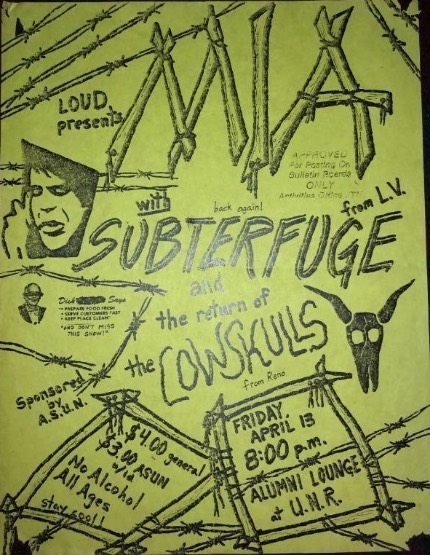 LOUD
presents
MIA
APPROVED
For Posting On
Bulletin Boards
ONLY
Activities Office
with
back again!
from L.V.
SUBTERFUGE
and
the return of
the COWSKULLS
from Reno
Dick Says
• PREPARE FOOD FRESH
• SERVE CUSTOMERS FAST
• KEEP PLACE CLEAN"
"AND DON'T MISS
THIS SHOW!"
Sponsored
by
A.S.U.N.
$4.00 general
$3.00 ASUN
w/id
No Alcohol
All Ages
stay cool!
FRIDAY,
APRIL 13
8:00 p.m.
ALUMNI LOUNGE
at U.N.R.